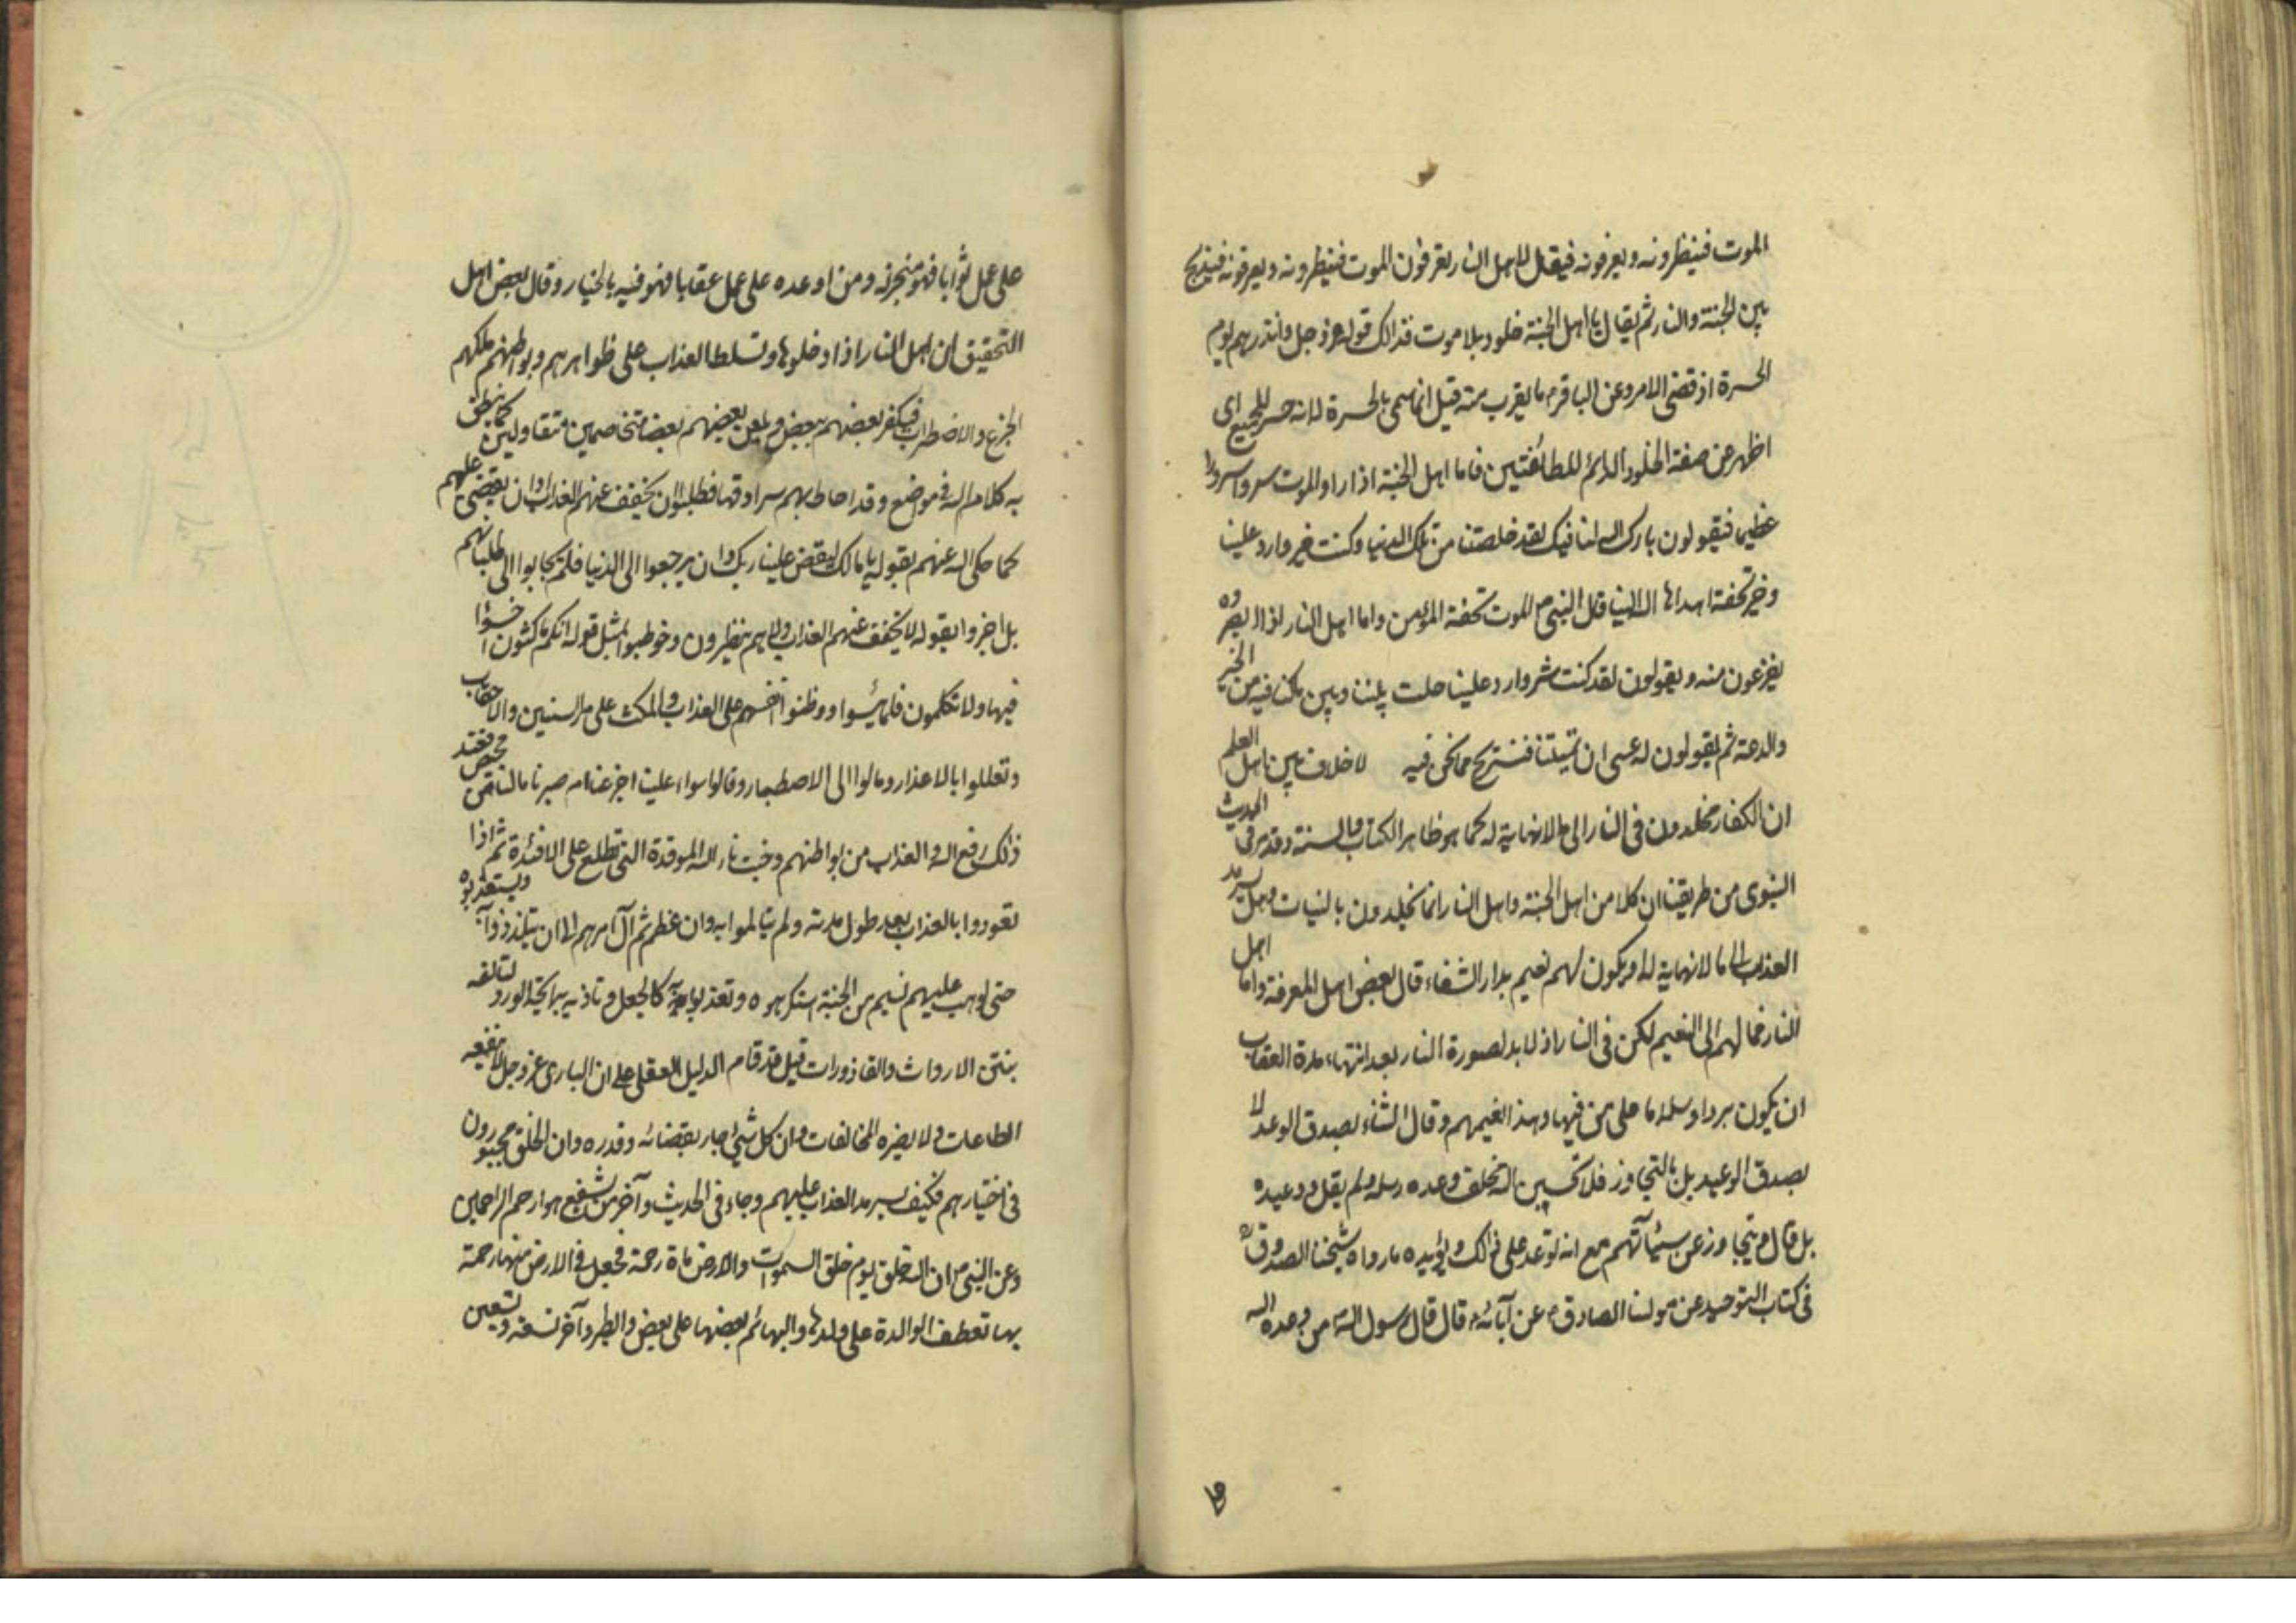 الموت فينظرونه ويعرفونه فيقال لاهل النار تعرفون الموت فينظرونه ويعرفونه فيذبح
بين الجنة والنار ثم يقال يا اهل الجنة خلود بلا موت فذالك قوله عز وجل وانذرهم يوم
الحسرة اذ قضى الامر وعن الباقر ع ما يقرب منه قيل انما سمى بالحسرة لانه حسر للجميع اى
اظهر عن صفة الخلود الدائم للطائفتين فاما اهل الجنة اذا راوا الموت سروا سرورا
عظيما فيقولون بارك الله لنا فيك لقد خلصتنا من تلك الدنيا وكنت خير وارد علينا
وخير تحفة اهداها الله الينا قال النبي ص الموت تحفة المؤمن واما اهل النار اذا ابصروه
يفزعون منه ويقولون لقد كنت شر وارد علينا حلت بيننا وبين ما كنا فيه من الخير
والدعة ثم يقولون له عسى ان تميتنا فنستريح مما نحن فيه لا خلاف بين اهل العلم
ان الكفار مخلدون فى النار الى ما لا نهاية له كما هو ظاهر الكتاب والسنة وقد مر فى الحديث
النبوى من طريقنا ان كلا من اهل الجنة واهل النار انما يخلدون بالنيات وهل يسرمد
العذاب الى ما لا نهاية له او يكون لهم نعيم بدار الشقاء قال بعض اهل المعرفة واما اهل
النار فمالهم الى النعيم لكن فى النار اذ لا بد لصورة النار بعد انتهاء مدة العقاب
ان يكون بردا وسلاما على من فيها وهذا نعيمهم وقال الثناء بصدق الوعد لا
بصدق الوعيد بل بالتجاوز فلا تحسبن الله مخلف وعده رسله ولم يقل ووعيده
بل قال ويتجاوز عن سيئآتهم مع انه توعد على ذالك ويؤيده ما رواه شيخنا الصدوق ره
فى كتاب التوحيد عن مولنا الصادق ع عن آبائه ع قال قال رسول الله ص من وعده الله
على عمل ثوابا فهو منجز له ومن اوعده على عمل عقابا فهو فيه بالخيار وقال بعض اهل
التحقيق ان اهل النار اذا دخلوها وتسلط العذاب على ظواهرهم وبواطنهم ملكهم
الجزع والاضطراب فيكفر بعضهم ببعض ويلعن بعضهم بعضا متخاصمين متقاولين كما نطق
به كلام الله فى مواضع وقد احاط بهم سرادقها فطلبوا ان يخفف عنهم العذاب او ان يقضى عليهم
كما حكى الله عنهم بقوله يا مالك ليقض علينا ربك او ان يرجعوا الى الدنيا فلم يجابوا الى طلباتهم
بل اخبروا بقوله لا يخفف عنهم العذاب ولا هم ينظرون وخوطبوا بمثل قوله انكم ماكثون اخسؤا
فيها ولا تكلمون فلما يئسوا ووطنوا انفسهم على العذاب والمكث على مر السنين والاحقاب
وتعللوا بالاعذار ومالوا الى الاصطبار وقالوا سواء علينا اجزعنا ام صبرنا ما لنا من محيص فعند
ذالك رفع الله العذاب من بواطنهم وخبت نار الله الموقدة التى تطلع على الافئدة ثم اذا
تعودوا بالعذاب بعد طول مدته ولم يتالموا به وان عظم ثم آل امرهم الى ان يتلذذوا به ويستعذبوه
حتى لو هب عليهم نسيم من الجنة استكرهوه وتعذبوا به كالجعل وتاذيه برايحة الورد لتالفه
بنتن الارواث والقاذورات قيل قد قام الدليل العقلى على ان البارى عز وجل لا تنفعه
الطاعات ولا يضره المخالفات وان كل شئ جار بقضائه وقدره وان الخلق مجبورون
فى اختيارهم فكيف يسرمد العذاب عليهم وجاء فى الحديث وآخر من يشفع هو ارحم الراحمين
وعن النبي ص ان الله خلق يوم خلق السموات والارض ماة رحمة فجعل فى الارض منها رحمة
بها تعطف الوالدة على ولدها والبهائم بعضها على بعض والطير وآخر تسعة وتسعين